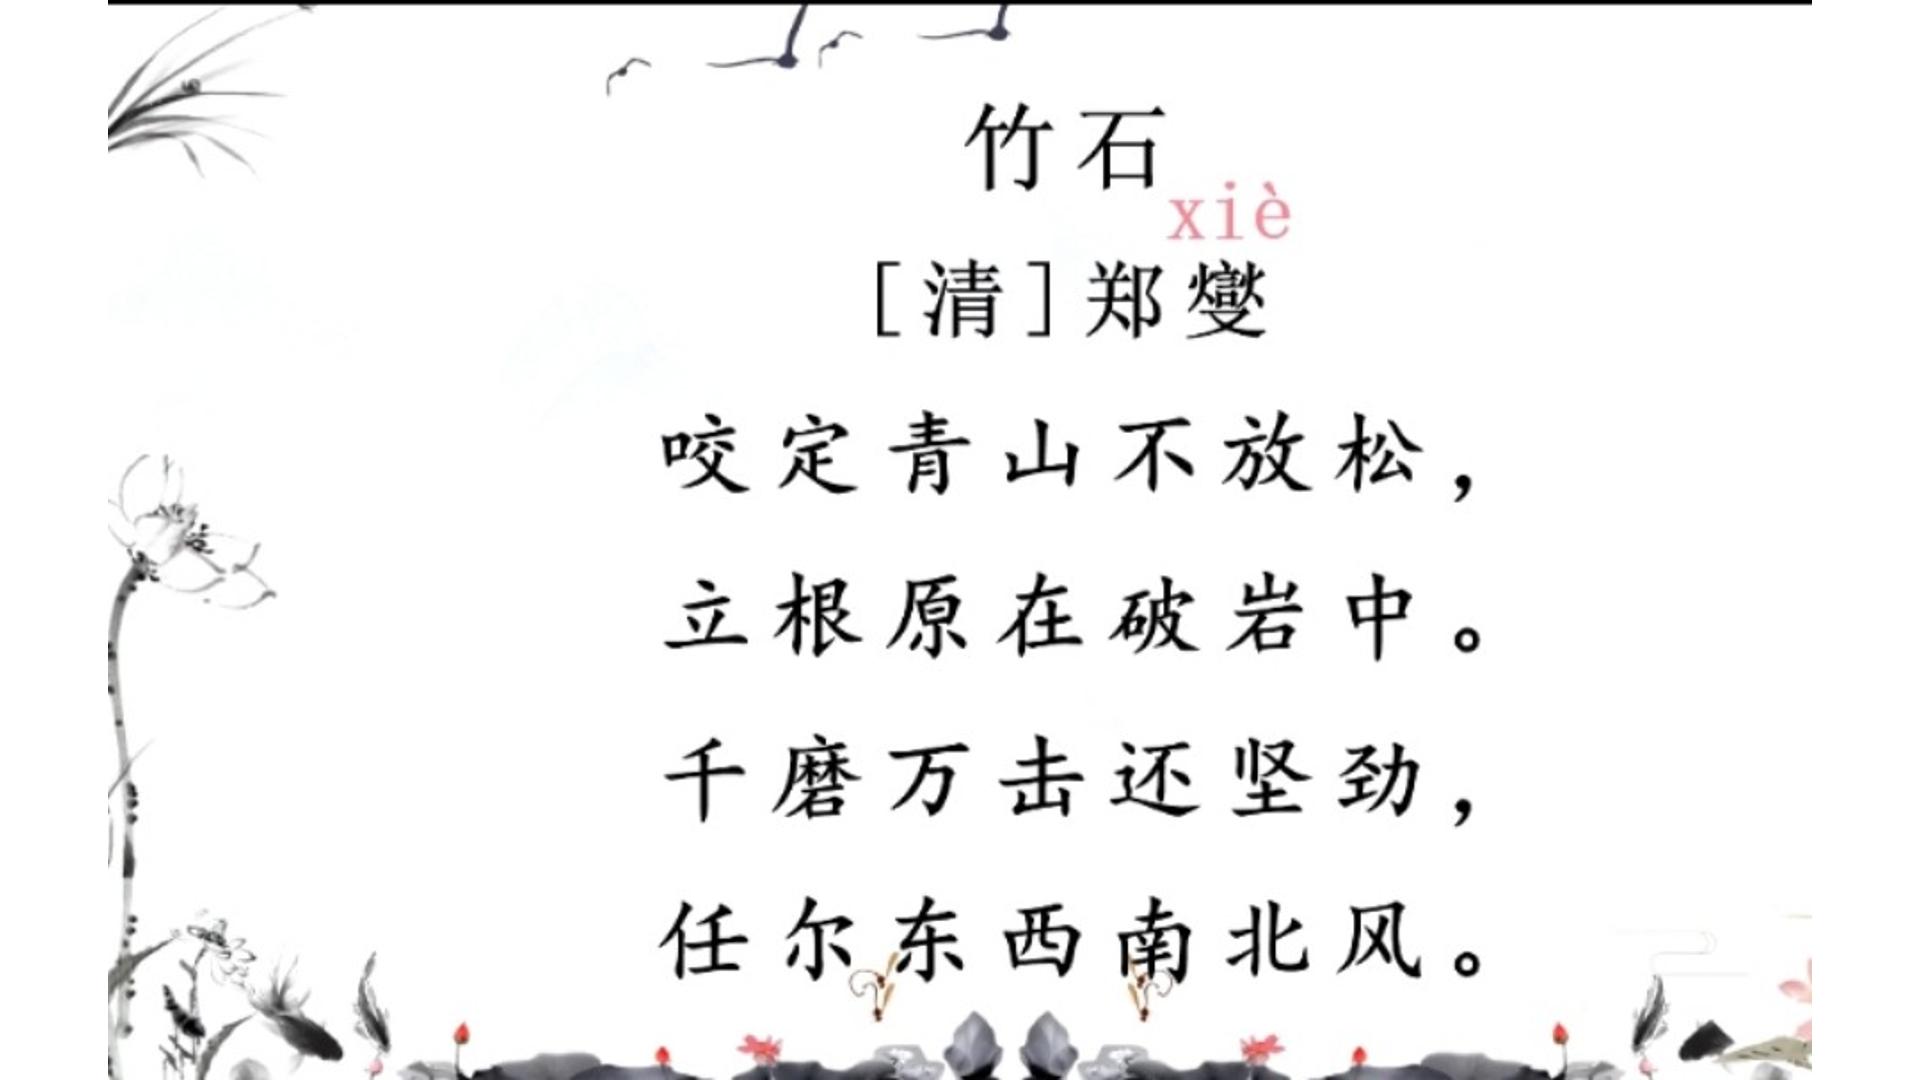 竹石
xiè
[清]郑燮
咬定青山不放松，
立根原在破岩中。
千磨万击还坚劲，
任尔东西南北风。